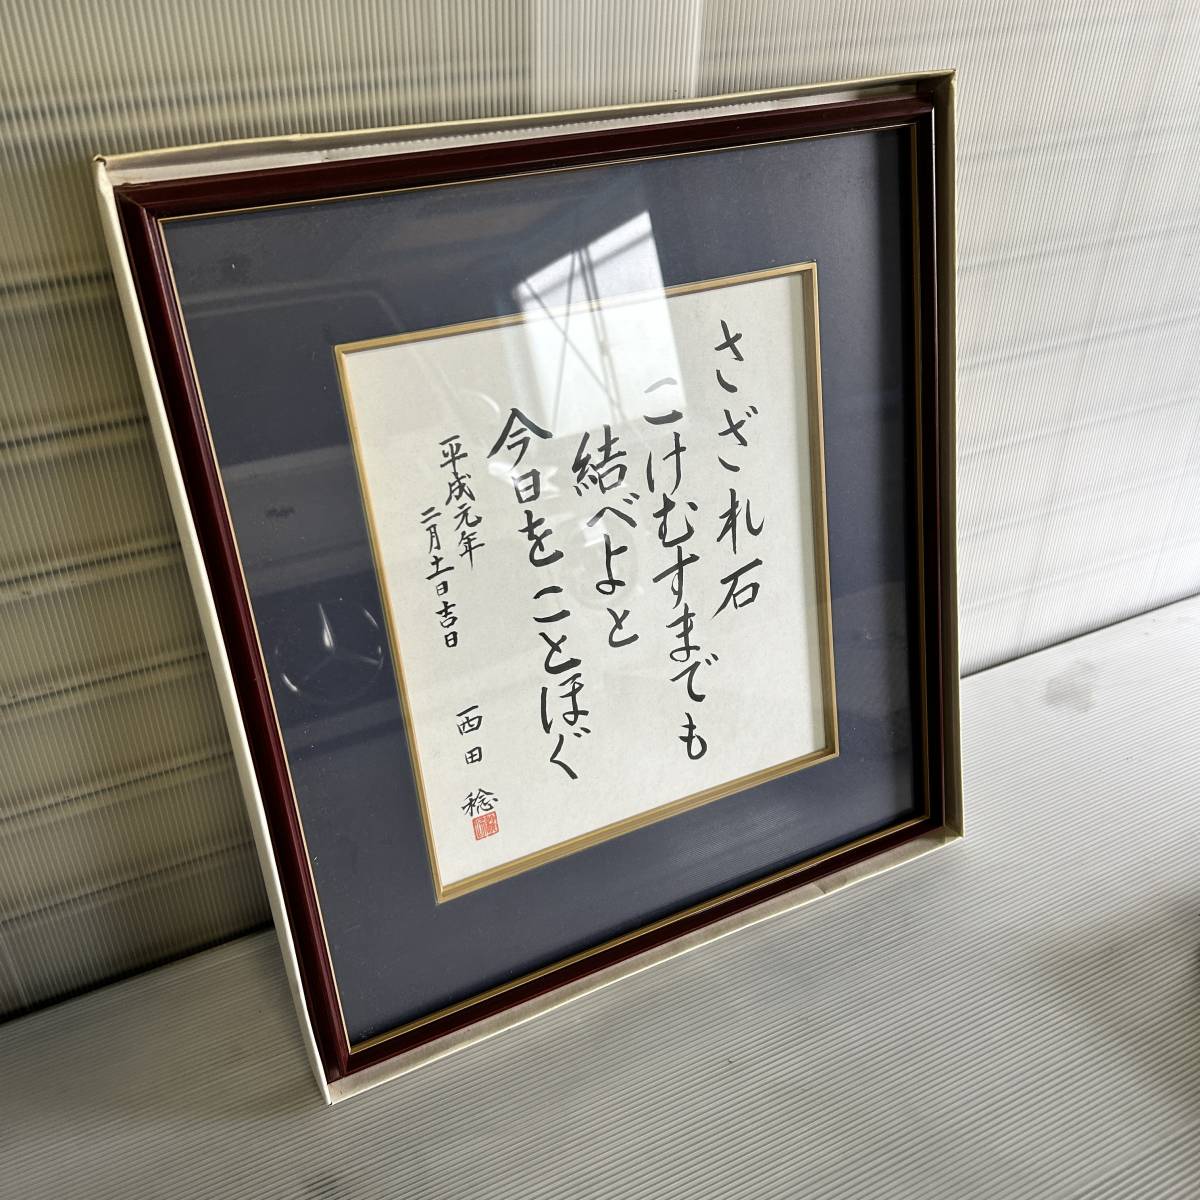 さざれ石
こけむすまでも
結べよと
今日をことほぐ
平成元年
二月十一日吉日
西田 稔